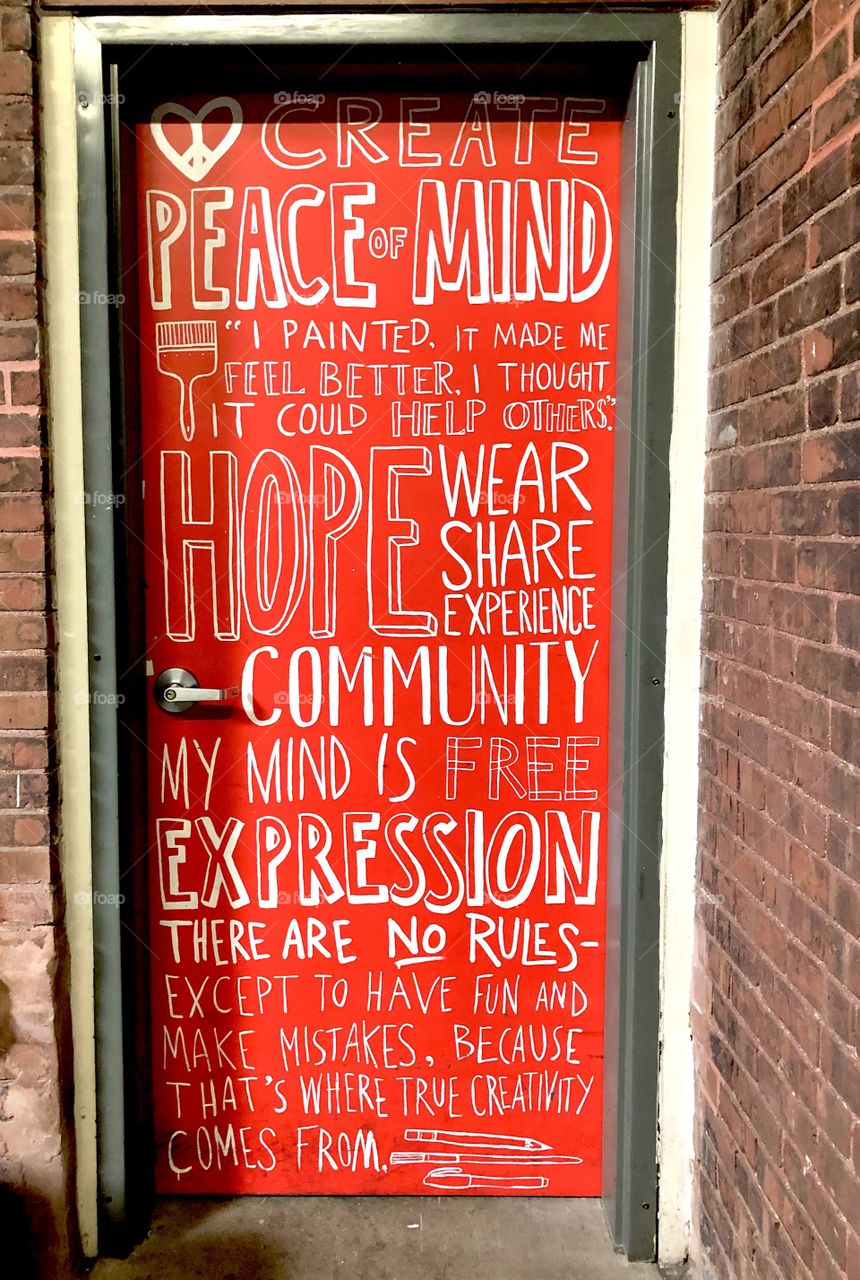 CREATE
PEACE OF MIND
"I PAINTED. IT MADE ME
FEEL BETTER. I THOUGHT
IT COULD HELP OTHERS".
HOPE
WEAR
SHARE
EXPERIENCE
COMMUNITY
MY MIND IS FREE
EXPRESSION
THERE ARE NO RULES-
EXCEPT TO HAVE FUN AND
MAKE MISTAKES, BECAUSE
THAT'S WHERE TRUE CREATIVITY
COMES FROM.